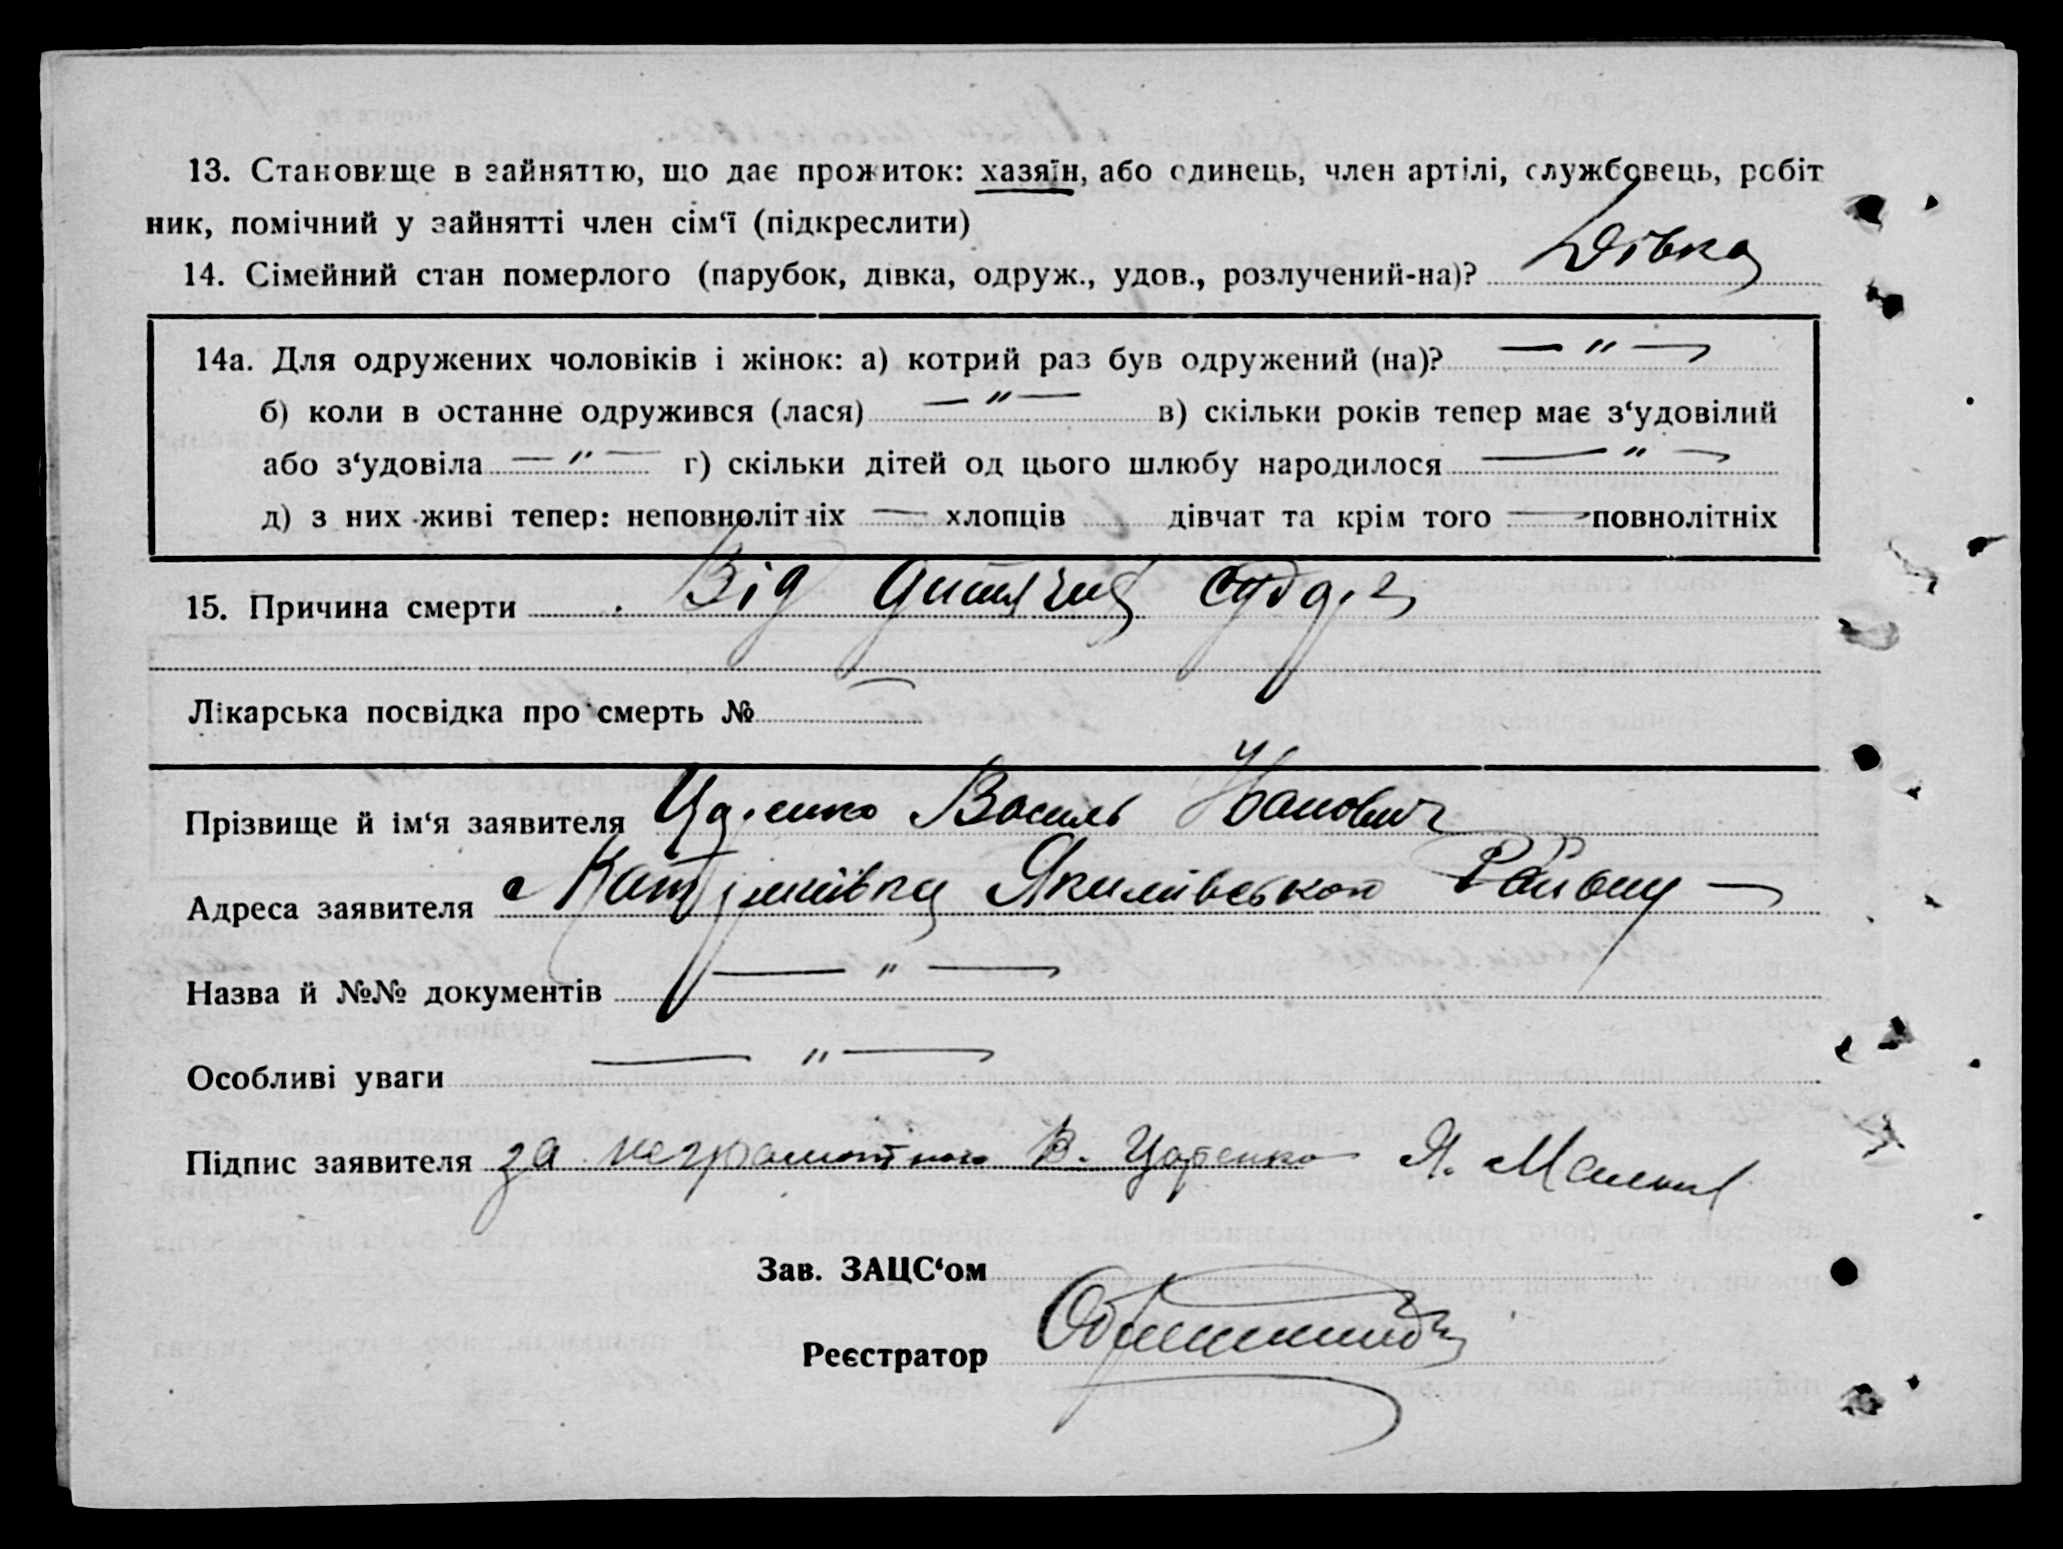 13. Становище в зайняттю, що дає прожиток: хазяїн, або одинець, член артілі, службовець, робіт
ник, помічний у зайнятті член сім‘ї (підкреслити)
14. Сімейний стан померлого (парубок, дівка, одруж., удов., розлучений-на)? Дівка
14а. Для одружених чоловіків і жінок: а) котрий раз був одружений (на)? — " —
б) коли в останне одружився (лася) — " — в) скільки років тепер має з‘удовілий
або з‘удовіла — " — г) скільки дітей од цього шлюбу народилося — " —
д) з них живі тепер: неповнолітніх — хлопців дівчат та крім того — повнолітніх
15. Причина смерти Від
Лікарська посвідка про смерть № —
Прізвище й ім‘я заявителя Царенко Василь Іванович
Адреса заявителя Якимівського Району —
Назва й №№ документів — " —
Особливі уваги — " —
Підпис заявителя за неграмотного В. Царенко Я.
Зав. ЗАЦС‘ом
Реєстратор